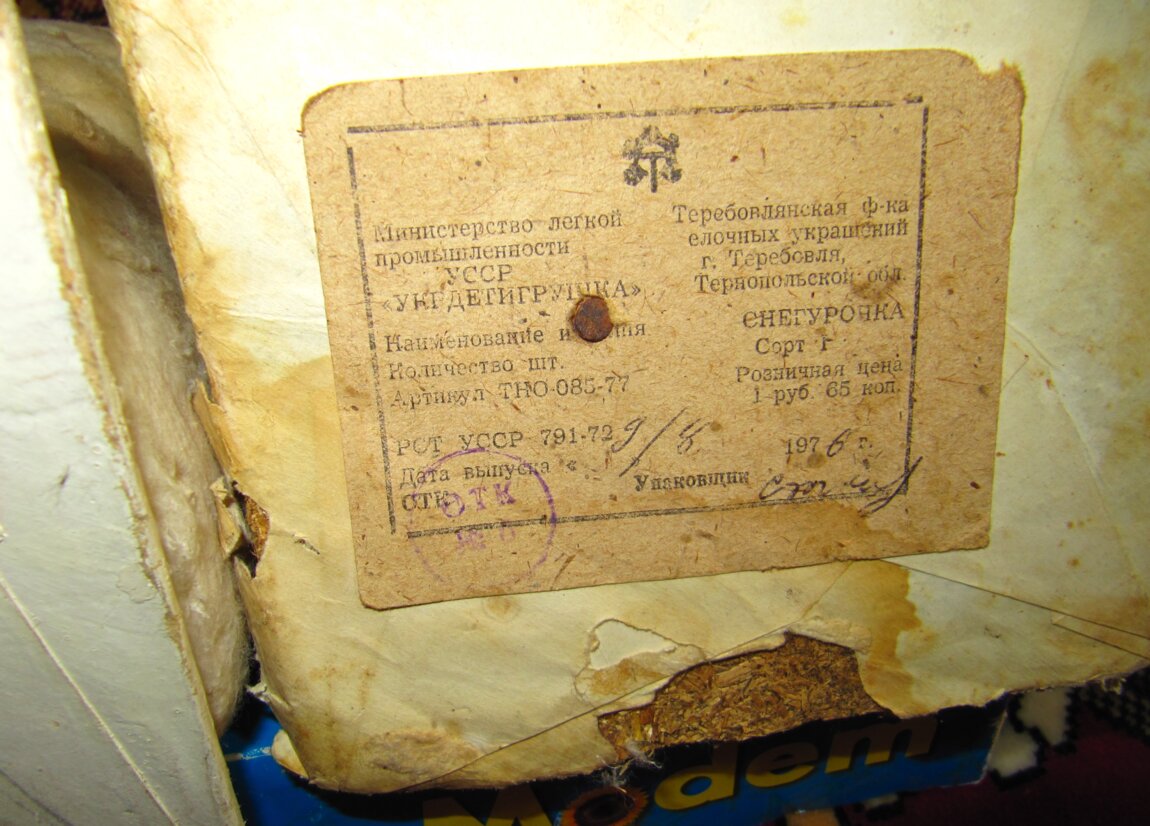 Министерство легкой
промышленности
УССР
«УКГДЕТИГРУШКА»
Теребовлянская ф-ка
елочных украшений
г. Теребовля,
Тернопольской обл.
Наименование
Количество шт.
Артикул ТНО-085-77
СНЕГУРОЧКА
Сорт 1
Розничная цена
1 руб. 65 коп.
РСТ УССР 791-72
Дата выпуска « 9/8 1976 г.
ОТК
Упаковщик
ОТК
Modem